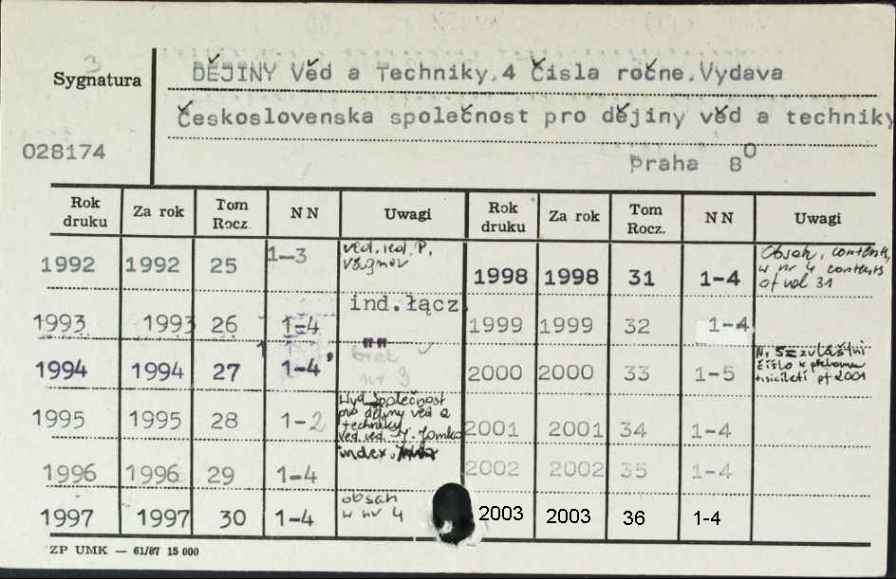 Sygnatura
DĚJINY Věd a Techniky.4 Čísla ročne.Vydava
Československa společnost pro dějiny věd a techniky
028174
Praha 8°
Rok druku Za rok Tom Rocz. N N Uwagi Rok druku Za rok Tom Rocz. N N Uwagi
1992 1992 25 1-3 ved. red. P. Vágner 1998 1998 31 1-4 Obsah, contents, w nr 4 contents of vol 31
1993 1993 26 1-4 ind.łącz. 1999 1999 32 1-4
1994 1994 27 1-4 brak nr 3 2000 2000 33 1-5 Nr 5=zvláštní číslo k přelomu tisíciletí pf 2001
1995 1995 28 1-2 Wyd. Společnost pro dějiny věd a techniky ved. red. 2001 2001 34 1-4
1996 1996 29 1-4 index. 2002 2002 35 1-4
1997 1997 30 1-4 obsah w nr 4 2003 2003 36 1-4
ZP UMK — 61/87 15 000